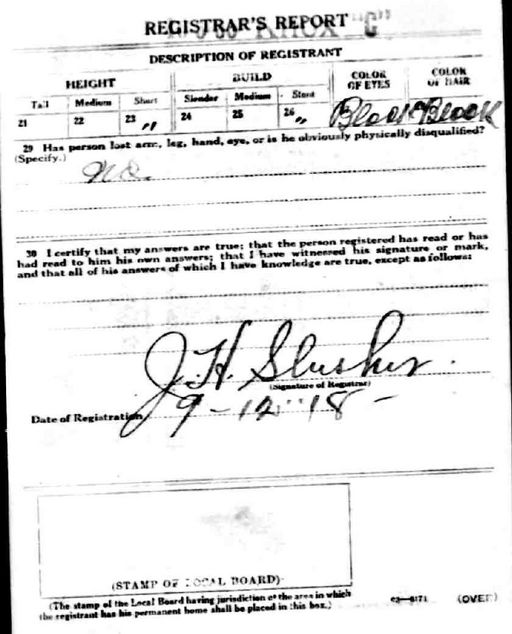 REGISTRAR'S REPORT "G"
DESCRIPTION OF REGISTRANT
HEIGHT BUILD COLOR OF EYES COLOR OF HAIR
Tall Medium Short Slender Medium Stout
21 22 23 " 24 25 26 " Black Black
29 Has person lost arm, leg, hand, eye, or is he obviously physically disqualified?
(Specify.)
No.
30 I certify that my answers are true; that the person registered has read or has
had read to him his own answers; that I have witnessed his signature or mark,
and that all of his answers of which I have knowledge are true, except as follows:
J. H. Slusher.
(Signature of Registrar)
Date of Registration 9-12-18-
(STAMP OF LOCAL BOARD)
(The stamp of the Local Board having jurisdiction of the area in which
the registrant has his permanent home shall be placed in this box.)
(OVER)